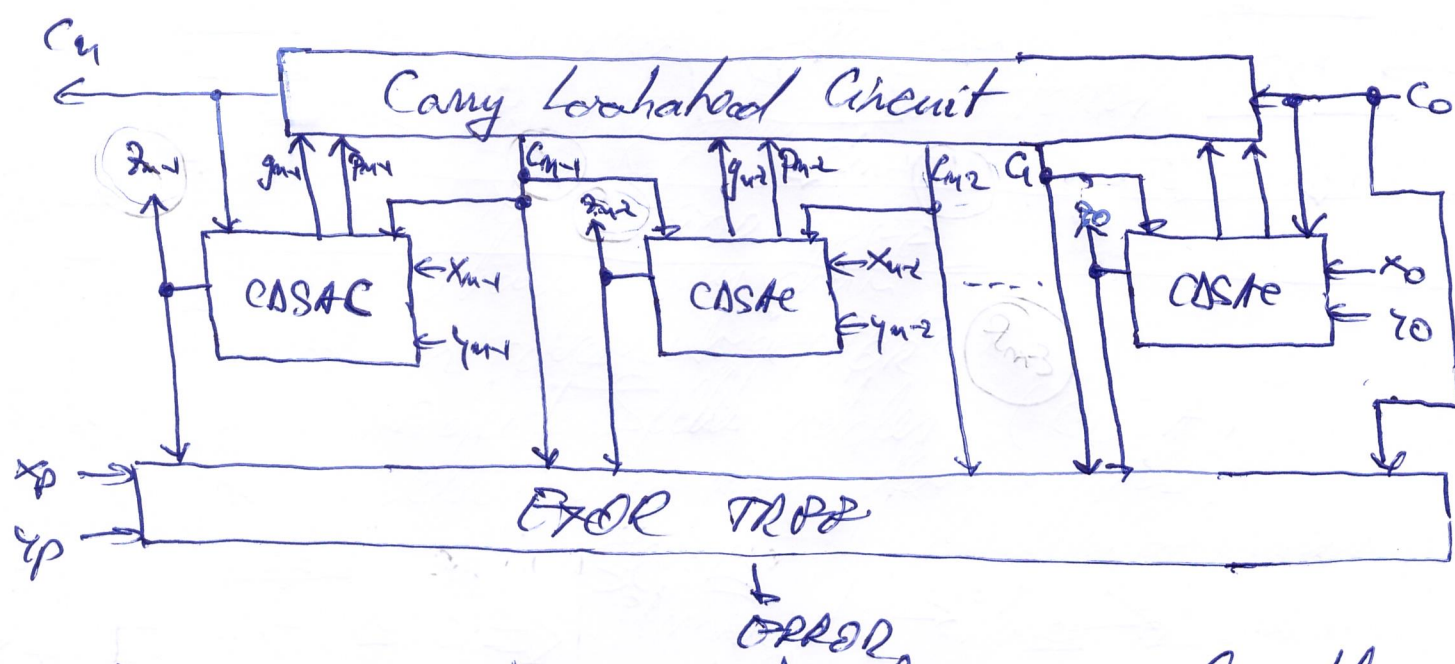 Cn
Carry Lookahead Circuit
C0
Zn-1
gn-1
pn-1
Cn-1
Zn-2
gn-2
pn-2
Cn-2
C1
Z0
CDSAC
Xn-1
Yn-1
CDSAC
Xn-2
Yn-2
----
Zn-3
CDSAC
X0
Y0
Xp
Yp
EXOR TREE
ERROR